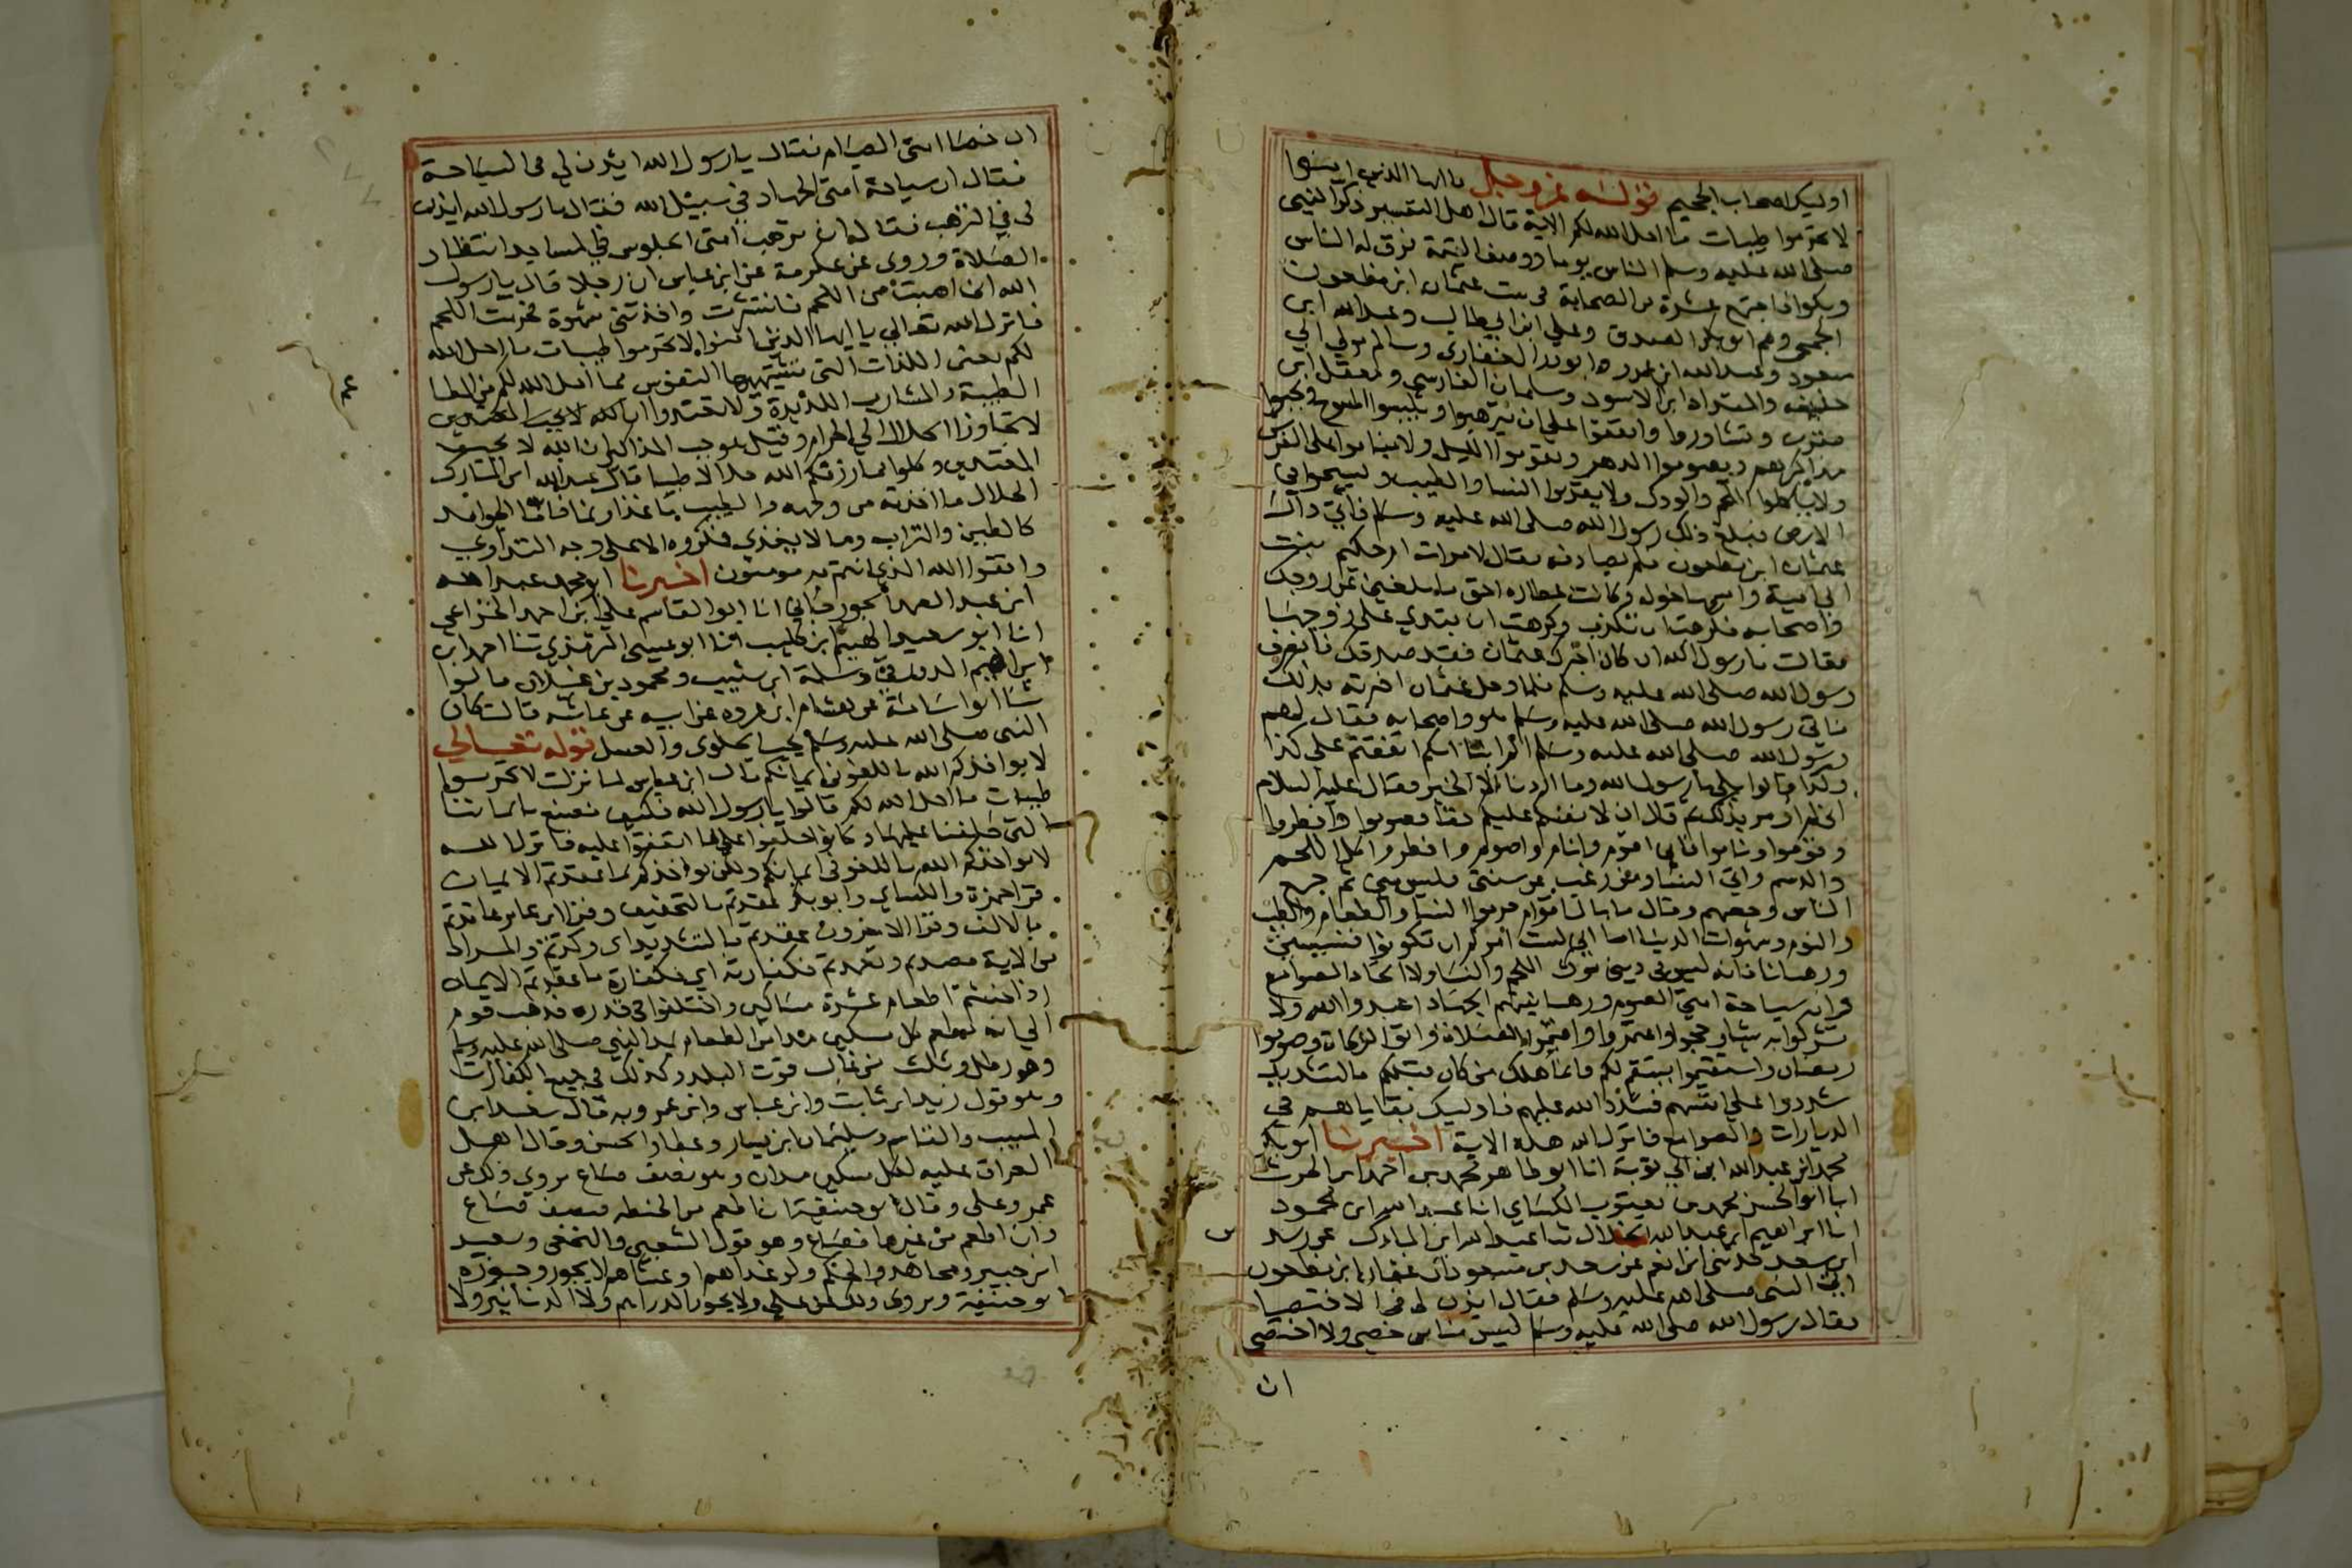 اوليك اصحاب الجحيم قوله عز وجل يا ايها الذين امنوا
لا تحرموا طيبات ما احل الله لكم الاية قال اهل التفسير ذكر النبي
صلى الله عليه وسلم الناس يوما ووصف القيمة فرق له الناس
وبكوا فاجتمع عشرة من الصحابة في بيت عثمان ابن مظعون
الجمحي وهم ابو بكر الصديق وعلي ابن ابي طالب وعبد الله ابن
مسعود وعبد الله ابن عمر وابو ذر الغفاري وسالم مولي ابي
حذيفه والمقداد ابن الاسود وسلمان الفارسي ومعقل ابن
مقرن وتشاوروا واتفقوا علي ان يترهبوا ويلبسوا المسوح ويجبوا
مذاكيرهم ويصوموا الدهر ويقوموا الليل ولا يناموا على الفرش
ولا ياكلوا اللحم والودك ولا يقربوا النسا والطيب ويسيحوا في
الارض فبلغ ذلك رسول الله صلى الله عليه وسلم فاتي دار
عثمان ابن مظعون فلم يصادفه فقال لامراته ام حكيم بنت
ابي امية واسمها خوله وكانت عطاره احق ما بلغني عن زوجك
واصحابه فكرهت ان تكذب وكرهت ان تبدي على زوجها
فقالت يا رسول الله ان كان اخبرك عثمان فقد صدقك فانصرف
رسول الله صلى الله عليه وسلم فلما دخل عثمان اخبرته بذلك
فاتي رسول الله صلى الله عليه وسلم هو واصحابه فقال لهم
رسول الله صلى الله عليه وسلم الم انبا انكم اتفقتم على كذا
وكذا قالوا بلي يا رسول الله وما اردنا الا الخير فقال عليه السلام
اني لم اومر بذلك ثم قال ان لانفسكم عليكم حقا فصوموا وافطروا
وقوموا وناموا فاني اقوم وانام واصوم وافطر واكل اللحم
والدسم واتي النسا ومن رغب عن سنتي فليس مني ثم جمع
الناس وخطبهم وقال ما بال اقوام حرموا النسا والطعام والطيب
والنوم وشهوات الدنيا اما اني لست امركم ان تكونوا قسيسين
ورهبانا فانه ليس في ديني ترك اللحم والنسا ولا اتخاذ الصوامع
وان سياحة امتي الصوم ورهبانيتهم الجهاد اعبدوا الله ولا
تشركوا به شيا وحجوا واعتمروا واقيموا الصلاة واتوا الزكاة وصوموا
رمضان واستقيموا يستقم لكم فانما هلك من كان قبلكم بالتشديد
شددوا علي انفسهم فشدد الله عليهم فاوليك بقاياهم في
الديارات والصوامع فانزل الله هذه الاية اخبرنا ابو بكر
محمد ابن عبد الله ابن ابي توبة انا ابو طاهر محمد بن احمد ابن الحرث
انا ابو الحسن محمد بن يعقوب الكساي انا عبد الله ابن محمود
انا ابراهيم ابن عبد الله الخلال ثنا عبد الله ابن المبارك عن رشد
ابن سعد حدثني ابن انعم عن سعد بن مسعود ان عثمان ابن مظعون
اتى النبي صلى الله عليه وسلم فقال ايذن لي في الاختصا
فقال رسول الله صلى الله عليه وسلم ليس منا من خصي ولا اختصى
ان
ان خصا امتي الصيام فقال يا رسول الله ايذن لي في السياحة
فقال ان سياحة امتي الجهاد في سبيل الله فقال يا رسول الله ايذن
لي في الترهب فقال ان ترهب امتي الجلوس في المساجد انتظار
الصلاة وروى عن عكرمة عن ابن عباس ان رجلا قال يا رسول
الله اني اصبت من اللحم فانتشرت واخذتني شهوة فحرمت اللحم
فانزل الله تعالي يا ايها الذين امنوا لا تحرموا طيبات ما احل الله
لكم يعني اللذات التي تشتهيها النفوس مما احل الله لكم من المطا
الطيبة والمشارب اللذيذة ولا تعتدوا ان الله لا يحب المعتدين
لا تجاوزا الحلال الي الحرام وقيل هو جب المذاكير ان الله لا يحب
المعتدين وكلوا مما رزقكم الله حلالا طيبا قال عبد الله ابن المبارك
الحلال ما اخذته من وجهه والطيب ما غذا ونما فاما الجوامد
كالطين والتراب وما لا يغذي فمكروه الا على وجه التداوي
واتقوا الله الذي انتم به مومنون اخبرنا ابو محمد عبد الله
ابن عبد الصمد الجوزجاني انا ابو القاسم علي ابن احمد الخزاعي
انا ابو سعيد الهيثم ابن كليب انا ابو عيسى الترمذي ثنا احمد ابن
ابراهيم الدورقي وسلمة ابن شبيب ومحمود بن غيلان قالوا
ثنا ابو اسامة عن هشام ابن عروه عن ابيه عن عائشه قالت كان
النبي صلى الله عليه وسلم يحب الحلوى والعسل قوله تعالي
لا يواخذكم الله باللغو في ايمانكم قال ابن عباس لما نزلت لا تحرموا
طيبات ما احل الله لكم قالوا يا رسول الله فكيف نصنع بايماننا
التي حلفنا عليها وكانوا حلفوا على ما اتفقوا عليه فانزل الله
لا يواخذكم الله باللغو في ايمانكم ولكن يواخذكم بما عقدتم الايمان
قرا حمزة والكساي وابو بكر عقدتم بالتخفيف وقرا ابن عامر عاقدتم
بالالف وقرا الاخرون عقدتم بالتشديد اي وكدتم والمراد
من الاية قصدتم وتعمدتم فكفارته اي فكفارة ما عقدتم الايمان
اذا حنثتم اطعام عشرة مساكين واختلفوا في قدره فذهب قوم
الي انه يطعم كل مسكين مدا من الطعام بمد النبي صلى الله عليه وسلم
وهو رطل وثلث من غالب قوت البلد وكذلك في جميع الكفارات
وهو قول زيد ابن ثابت وابن عباس وابن عمر وبه قال سعيد ابن
المسيب والقاسم وسليمان ابن يسار وعطا والحسن وقال اهل
العراق عليه لكل مسكين مدان وهو نصف صاع يروي ذلك عن
عمر وعلى وقال ابو حنيفة ان اطعم من الحنطه فنصف صاع
وان اطعم من غيرها فصاع وهو قول الشعبي والنخعي وسعيد
ابن جبير ومجاهد والحكم ولو غداهم وعشاهم لا يجوز وجوزه
ابو حنيفة ويروى ذلك عن علي ولا يجوز الدراهم ولا الدنانير ولا